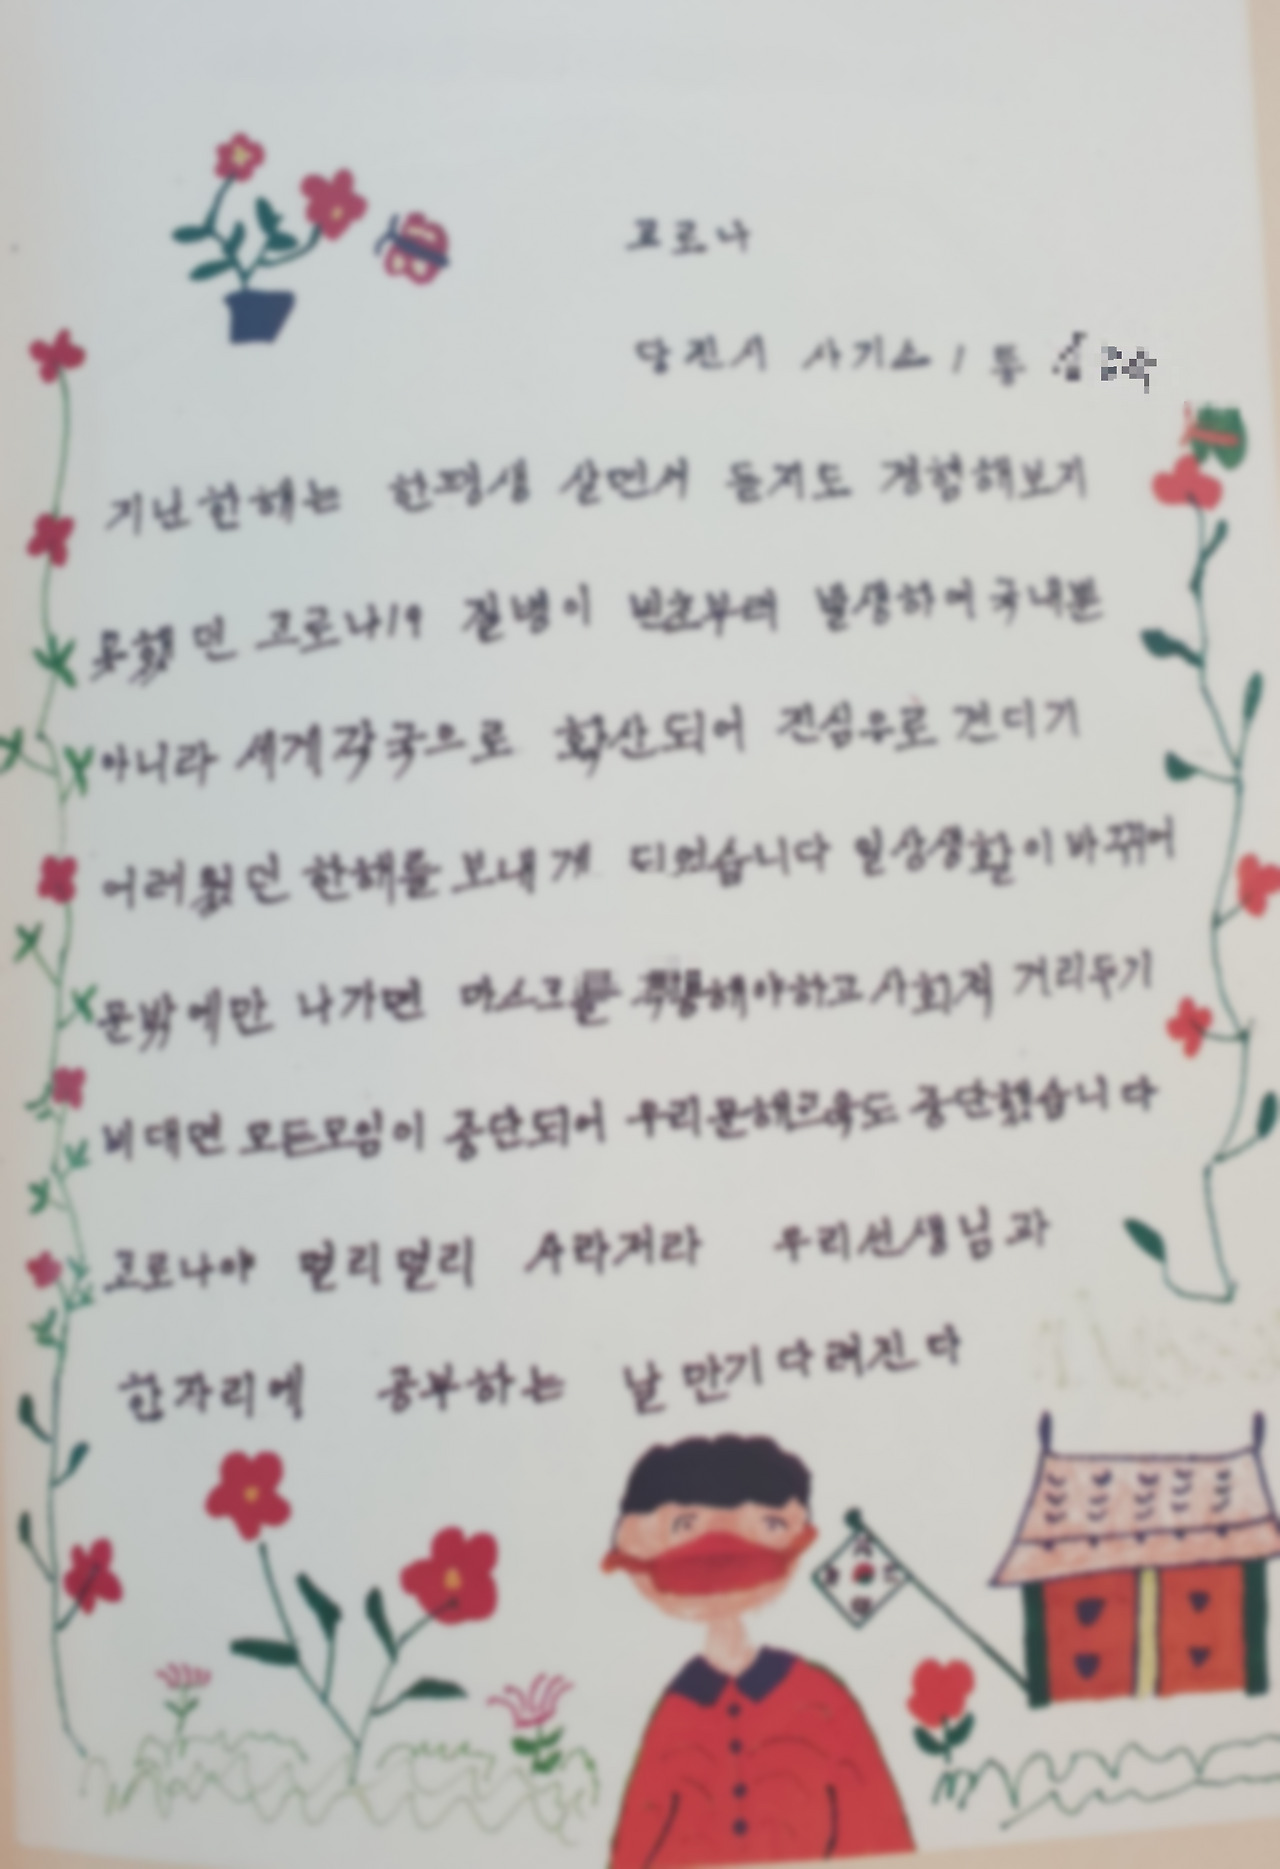 코로나
당진시 사기소 1통
지난한해는 한평생 살면서 듣지도 경험해보지
못했던 코로나19 질병이 년초부터 발생하여 국내뿐
아니라 세계각국으로 확산되어 진심우로 견디기
어려웠던 한해를 보내게 디었습니다 일상생활이 바뀌어
문밖에만 나가면 마스크를 착용해야하고 사회적 거리두기
비대면 모든모임이 중단되어 우리문해교육도 중단했습니다
코로나야 멀리멀리 사라저라 우리선생님과
한자리에 공부하는 날 만기다려진다